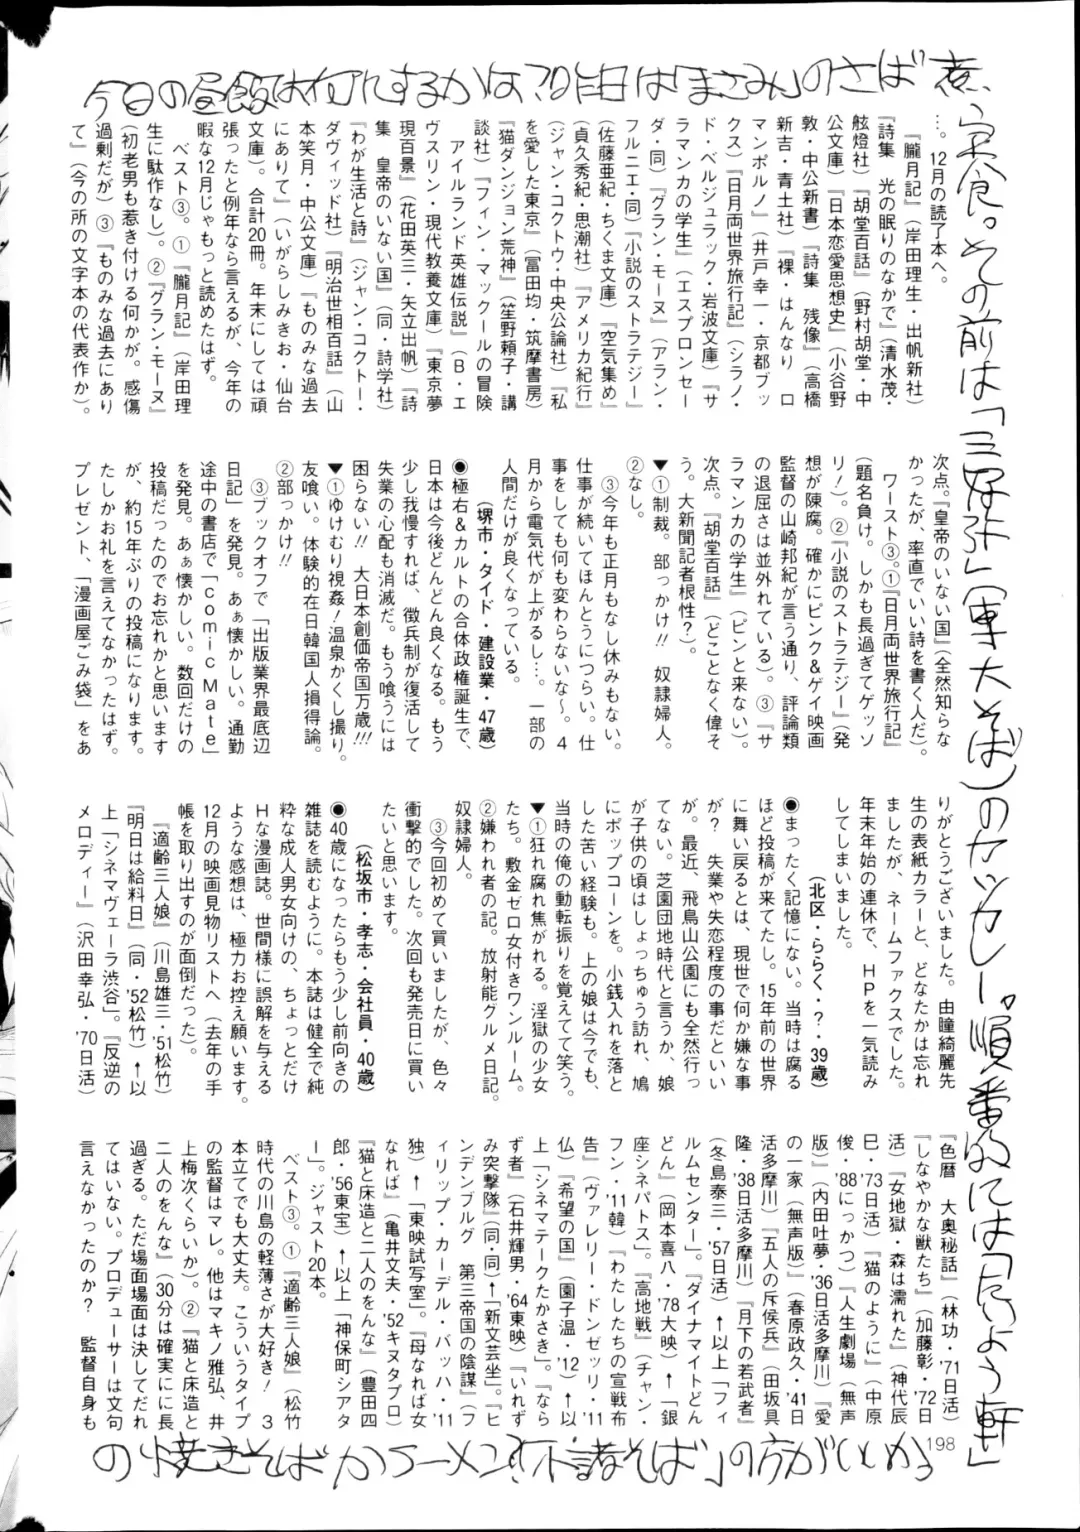 今日の昼飯は何にするかな？昨日は「まさみ」のさば煮
定食。その前は「三屏汁」(専大そば)のカツカレー。順番的には「尽よう軒」
の焼きそばかラーメン？「不諸そば」の方がいいかぅ
…。12月の読了本へ。
『朧月記』(岸田理生・出帆新社)
『詩集　光の眠りのなかで』(清水茂・
舷燈社)『胡堂百話』(野村胡堂・中
公文庫)『日本恋愛思想史』(小谷野
敦・中公新書)『詩集　残像』(高橋
新吉・青土社)『裸・はんなり　ロ
マンポルノ』(井戸幸一・京都ブッ
クス)『日月両世界旅行記』(シラノ・
ド・ベルジュラック・岩波文庫)『サ
ラマンカの学生』(エスプロンセー
ダ・同)『グラン・モーヌ』(アラン・
フルニエ・同)『小説のストラテジー』
(佐藤亜紀・ちくま文庫)『空気集め』
(貞久秀紀・思潮社)『アメリカ紀行』
(ジャン・コクトウ・中央公論社)『私
を愛した東京』(冨田均・筑摩書房)
『猫ダンジョン荒神』(笙野頼子・講
談社)『フィン・マックールの冒険
　アイルランド英雄伝説』(B・エ
ヴスリン・現代教養文庫)『東京夢
現百景』(花田英三・矢立出帆)『詩
集　皇帝のいない国』(同・詩学社)
『わが生活と詩』(ジャン・コクトー・
ダヴィッド社)『明治世相百話』(山
本笑月・中公文庫)『ものみな過去
にありて』(いがらしみきお・仙台
文庫)。合計20冊。年末にしては頑
張ったと例年なら言えるが、今年の
暇な12月じゃもっと読めたはず。
　ベスト③。①『朧月記』(岸田理
生に駄作なし)。②『グラン・モーヌ』
(初老男も惹き付ける何かが。感傷
過剰だが)③『ものみな過去にあり
て』(今の所の文字本の代表作か)。
次点。『皇帝のいない国』(全然知らな
かったが、率直でいい詩を書く人だ)。
　ワースト③。①『日月両世界旅行記』
(題名負け。しかも長過ぎてゲッソ
リ！)。②『小説のストラテジー』(発
想が陳腐。確かにピンク&ゲイ映画
監督の山崎邦紀が言う通り、評論類
の退屈さは並外れている)。③『サ
ラマンカの学生』(ピンと来ない)。
次点。『胡堂百話』(どことなく偉そ
う。大新聞記者根性？)。
▼①制裁。部っかけ!!　奴隷婦人。
②なし。
　③今年も正月もなし休みもない。
仕事が続いてほんとうにつらい。仕
事をしても何も変わらないな〜。4
月から電気代が上がるし…。一部の
人間だけが良くなっている。
(堺市・タイド・建設業・47歳)
●極右&カルトの合体政権誕生で、
日本は今後どんどん良くなる。もう
少し我慢すれば、徴兵制が復活して
失業の心配も消滅だ。もう喰うには
困らない!!　大日本創価帝国万歳!!!
▼①ゆけむり視姦！温泉かくし撮り。
友喰い。体験的在日韓国人損得論。
②部っかけ!!
　③ブックオフで「出版業界最底辺
日記」を発見。あぁ懐かしい。通勤
途中の書店で「comic Mate」
を発見。あぁ懐かしい。数回だけの
投稿だったのでお忘れかと思います
が、約15年ぶりの投稿になります。
たしかお礼を言えてなかったはず。
プレゼント、「漫画屋ごみ袋」をあ
りがとうございました。由瞳綺麗先
生の表紙カラーと、どなたかは忘れ
ましたが、ネームファクスでした。
年末年始の連休で、HPを一気読み
してしまいました。
(北区・ららく・？・39歳)
●まったく記憶にない。当時は腐る
ほど投稿が来てたし。15年前の世界
に舞い戻るとは、現世で何か嫌な事
が？　失業や失恋程度の事だといい
が。最近、飛鳥山公園にも全然行っ
てない。芝園団地時代と言うか、娘
が子供の頃はしょっちゅう訪れ、鳩
にポップコーンを。小銭入れを落と
した苦い経験も。上の娘は今でも、
当時の俺の動転振りを覚えてて笑う。
▼①狂れ腐れ焦がれる。淫獄の少女
たち。敷金ゼロ女付きワンルーム。
②嫌われ者の記。放射能グルメ日記。
奴隷婦人。
　③今回初めて買いましたが、色々
衝撃的でした。次回も発売日に買い
たいと思います。
(松坂市・孝志・会社員・40歳)
●40歳になったらもう少し前向きの
雑誌を読むように。本誌は健全で純
粋な成人男女向けの、ちょっとだけ
Hな漫画誌。世間様に誤解を与える
ような感想は、極力お控え願います。
12月の映画見物リストへ(去年の手
帳を取り出すのが面倒だった)。
『適齢三人娘』(川島雄三・'51松竹)
『明日は給料日』(同・'52松竹)↑以
上「シネマヴェーラ渋谷」。『反逆の
メロディー』(沢田幸弘・'70日活)
『色暦　大奥秘話』(林功・'71日活)
『しなやかな獣たち』(加藤彰・'72日
活)『女地獄・森は濡れた』(神代辰
巳・'73日活)『猫のように』(中原
俊・'88にっかつ)『人生劇場(無声
版)』(内田吐夢・'36日活多摩川)『愛
の一家(無声版)』(春原政久・'41日
活多摩川)『五人の斥候兵』(田坂具
隆・'38日活多摩川)『月下の若武者』
(冬島泰三・'57日活)↑以上「フィ
ルムセンター」。『ダイナマイトどん
どん』(岡本喜八・'78大映)↑「銀
座シネパトス」。『高地戦』(チャン・
フン・'11韓)『わたしたちの宣戦布
告』(ヴァレリー・ドンゼッリ・'11
仏)『希望の国』(園子温・'12)↑以
上「シネマテークたかさき」。『なら
ず者』(石井輝男・'64東映)『いれず
み突撃隊』(同・同)↑「新文芸坐」。『ヒ
ンデンブルグ　第三帝国の陰謀』(フ
ィリップ・カーデルバッハ・'11
独)↑「東映試写室」。『母なれば女
なれば』(亀井文夫・'52キヌタプロ)
『猫と庄造と二人のをんな』(豊田四
郎・'56東宝)↑以上「神保町シアタ
ー」。ジャスト20本。
　ベスト③。①『適齢三人娘』(松竹
時代の川島の軽薄さが大好き！　3
本立てでも大丈夫。こういうタイプ
の監督はマレ。他はマキノ雅弘、井
上梅次くらいか)。②『猫と庄造と
二人のをんな』(30分は確実に長
過ぎる。ただ場面場面は決してだれ
てはいない。プロデューサーは文句
言えなかったのか？　監督自身も
198